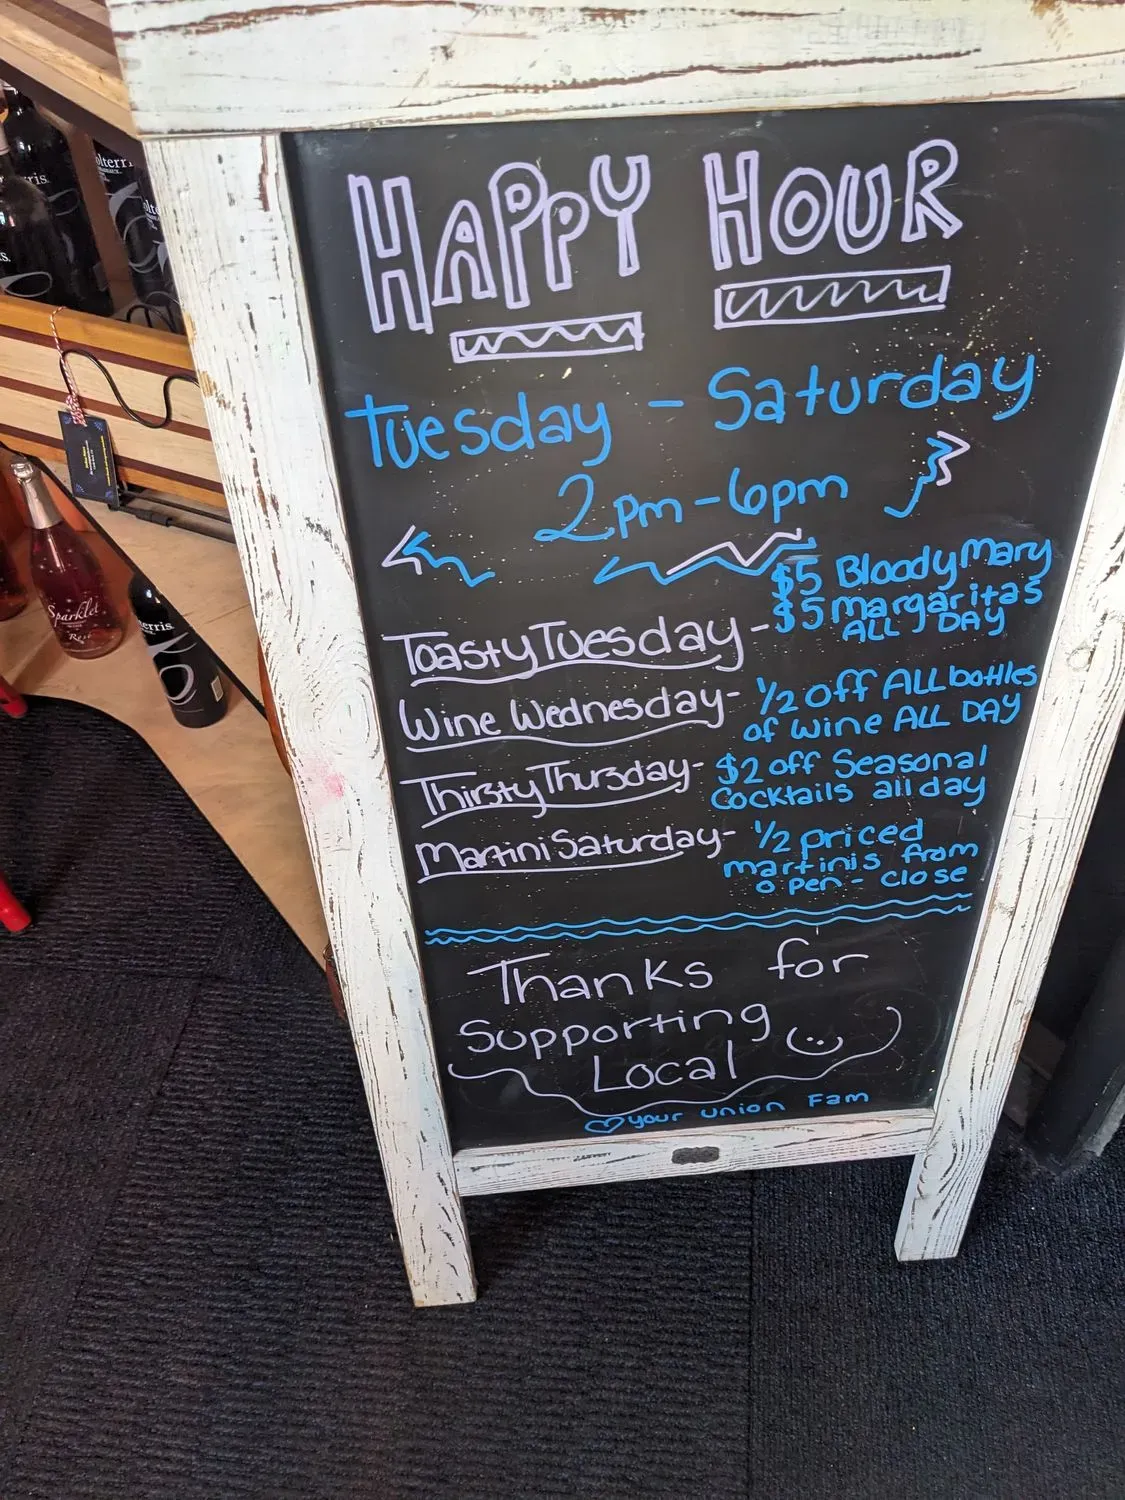 HAPPY HOUR
Tuesday - Saturday
2pm-6pm
Toasty Tuesday - $5 Bloody Mary
$5 margaritas
ALL DAY
Wine Wednesday - 1/2 off ALL bottles
of wine ALL DAY
Thirsty Thursday - $2 off Seasonal
Cocktails all day
Martini Saturday - 1/2 priced
martinis from
open - close
Thanks for
Supporting
Local
your union Fam
Sparklet
Rosé